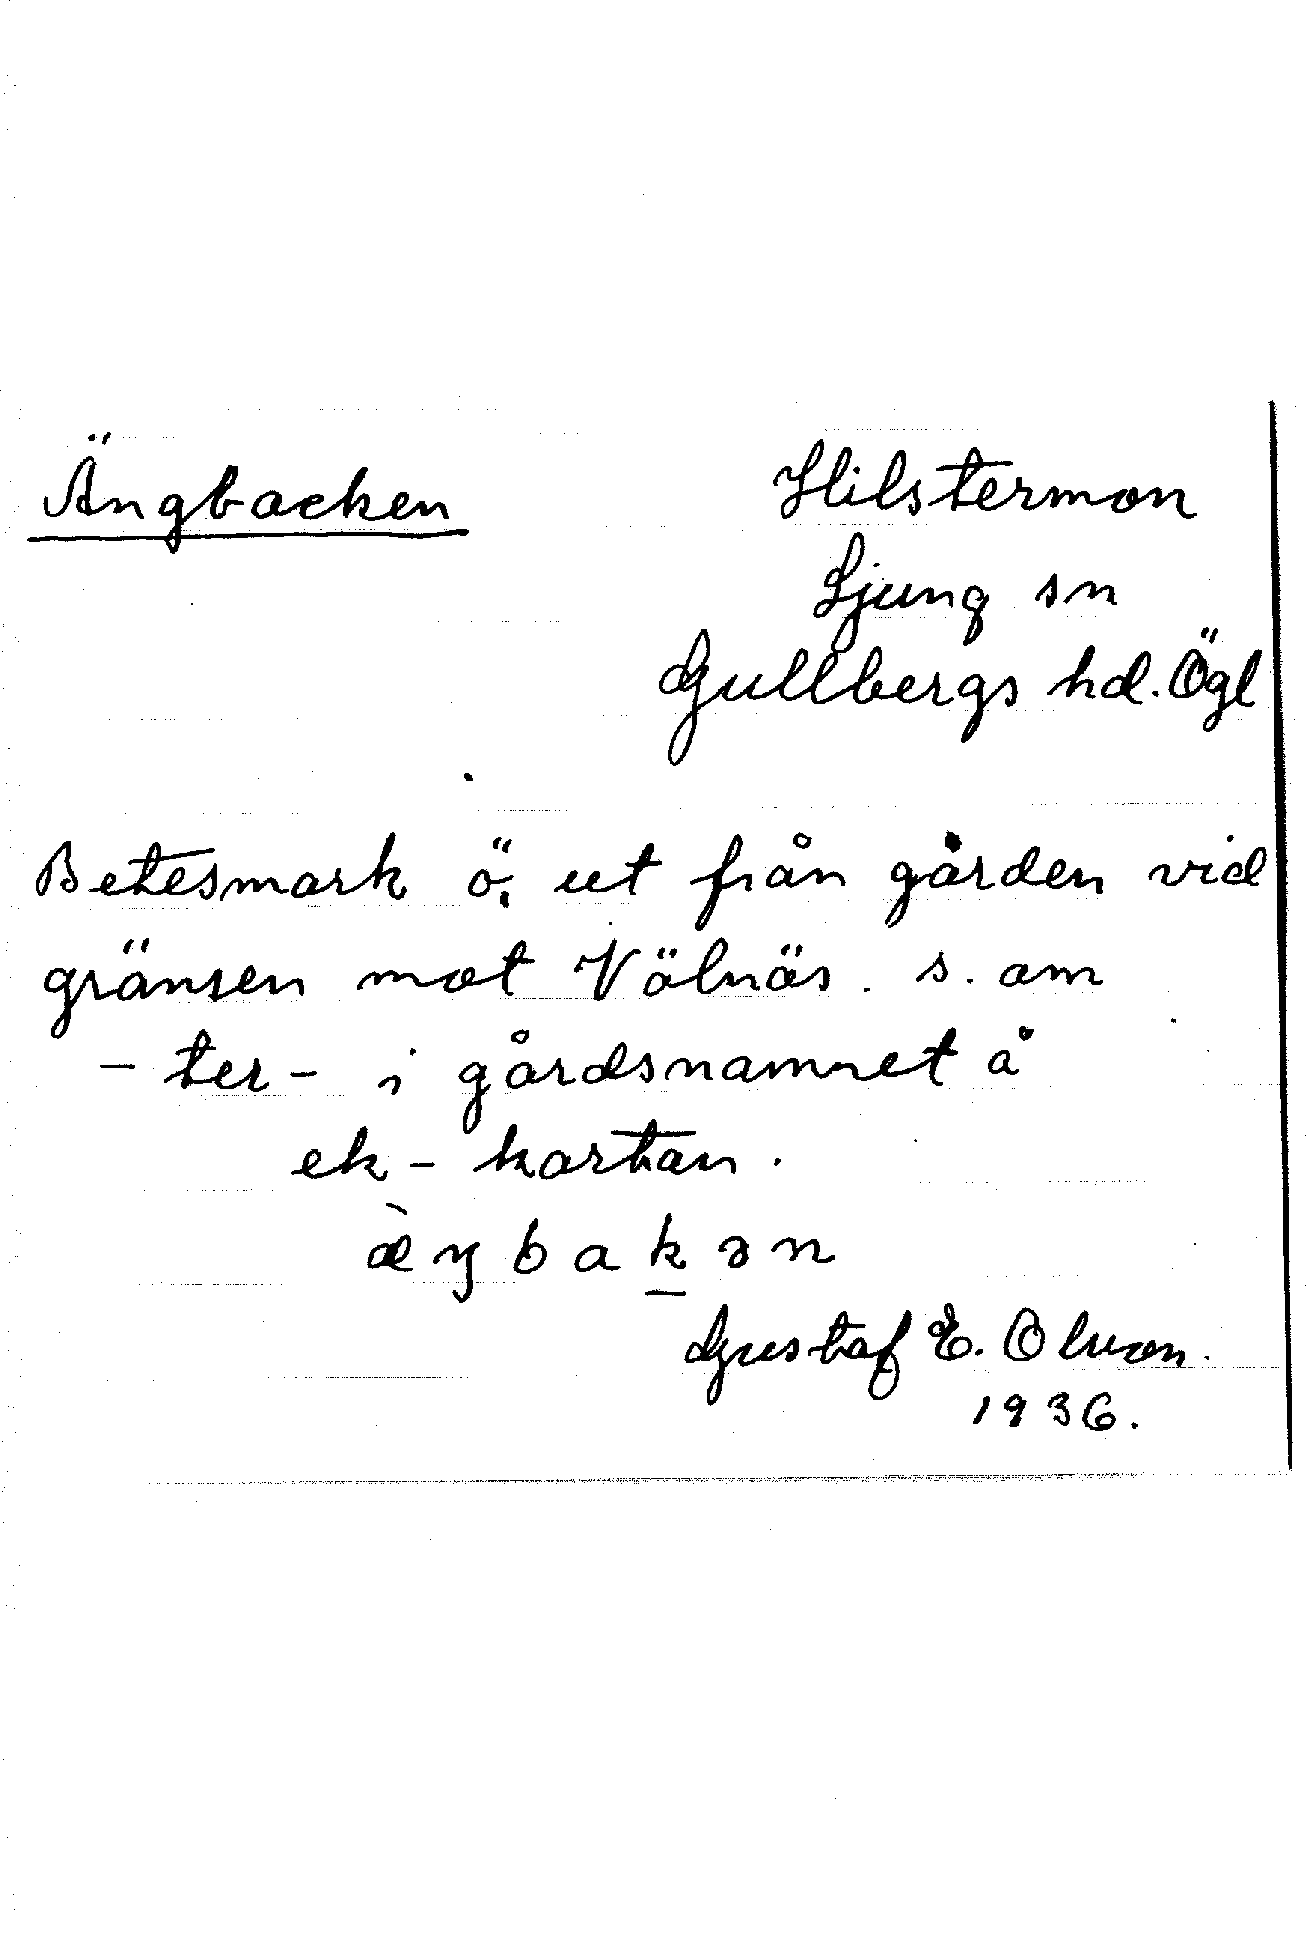 Ängbacken
Hilstermon
Ljung sn
Gullbergs hd. Ögl
Betesmark ö. ut från gården vid
gränsen mot Välnäs. s. om
- ter - i gårdsnamnet å
ek - kartan.
æ̀ŋbakən
Gustaf E. Olsson.
1936.